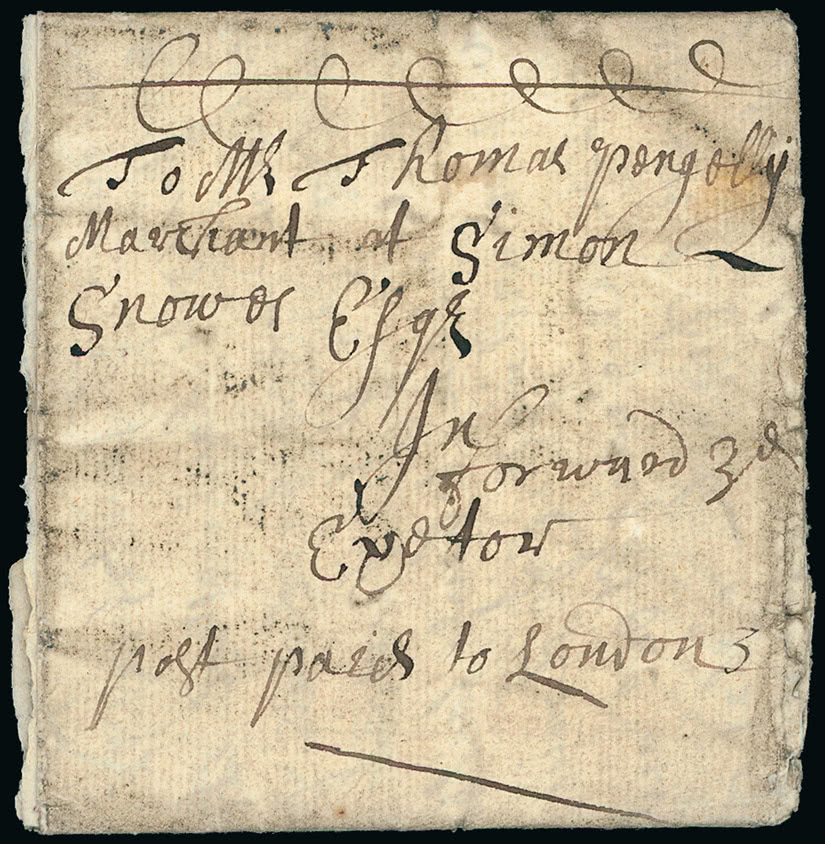 To Mr Thomas Pengelly
Marchant at Simon
Snowes Esqr
In
forward 3d
Exetor
post paid to London 3